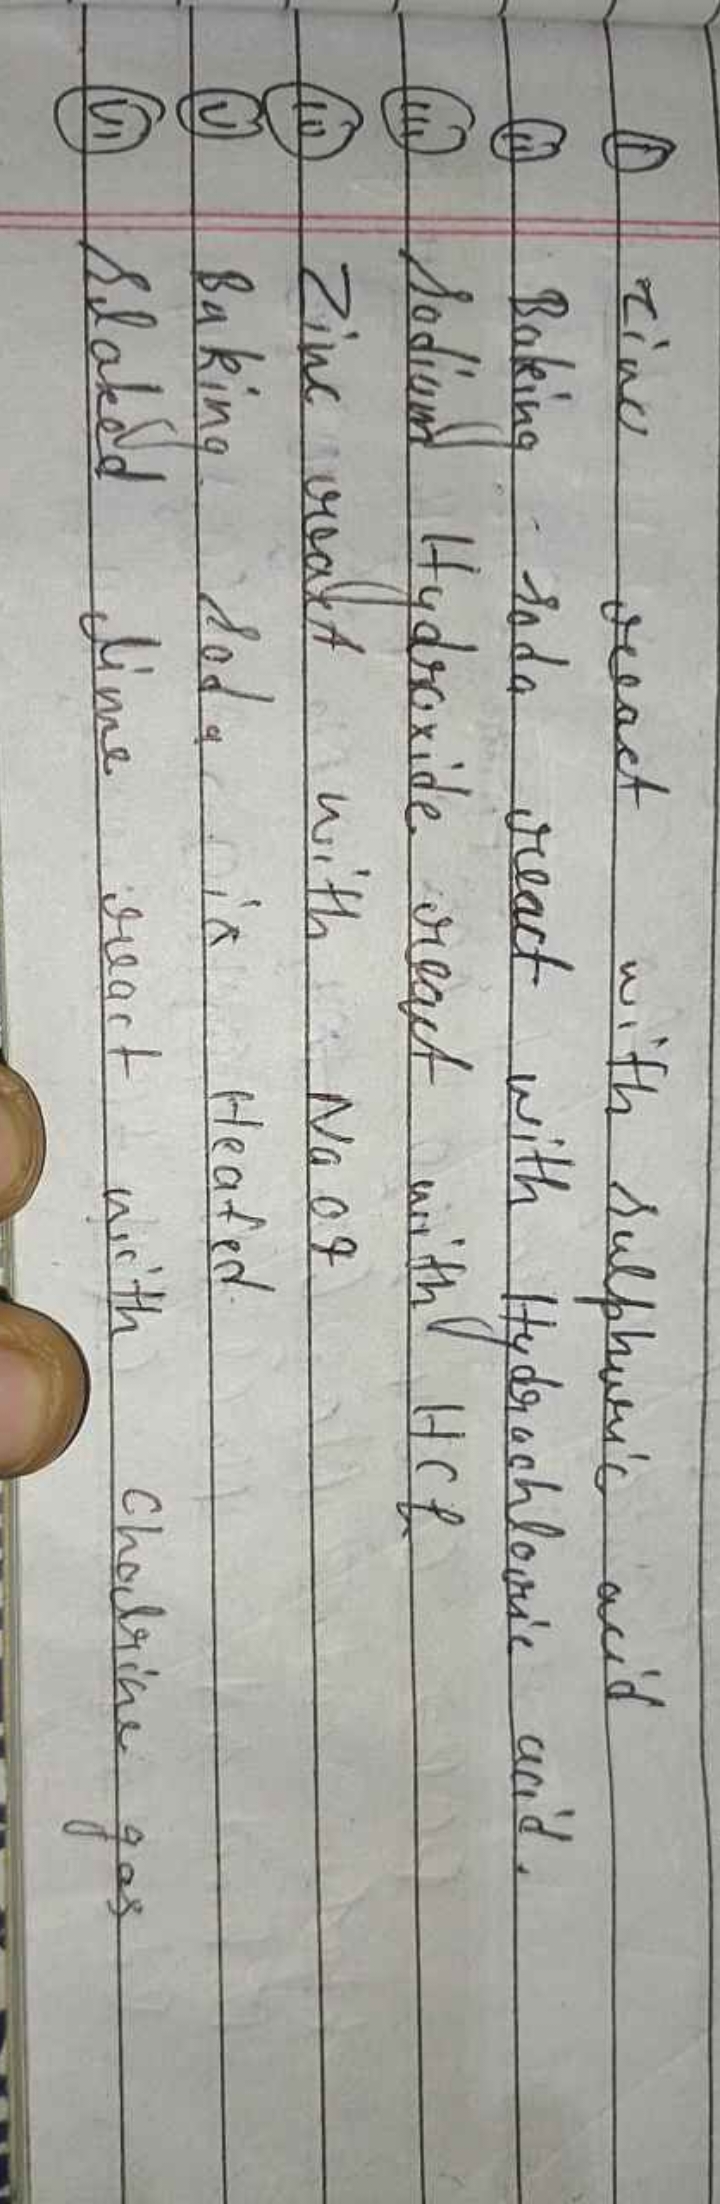 (i) Zinc react with sulphuric acid
(ii) Baking soda react with Hydrochloric acid.
(iii) Sodium Hydroxide react with HCl
(iv) Zinc react with NaOH
(v) Baking soda is Heated.
(vi) Slaked lime react with Cholrine gas